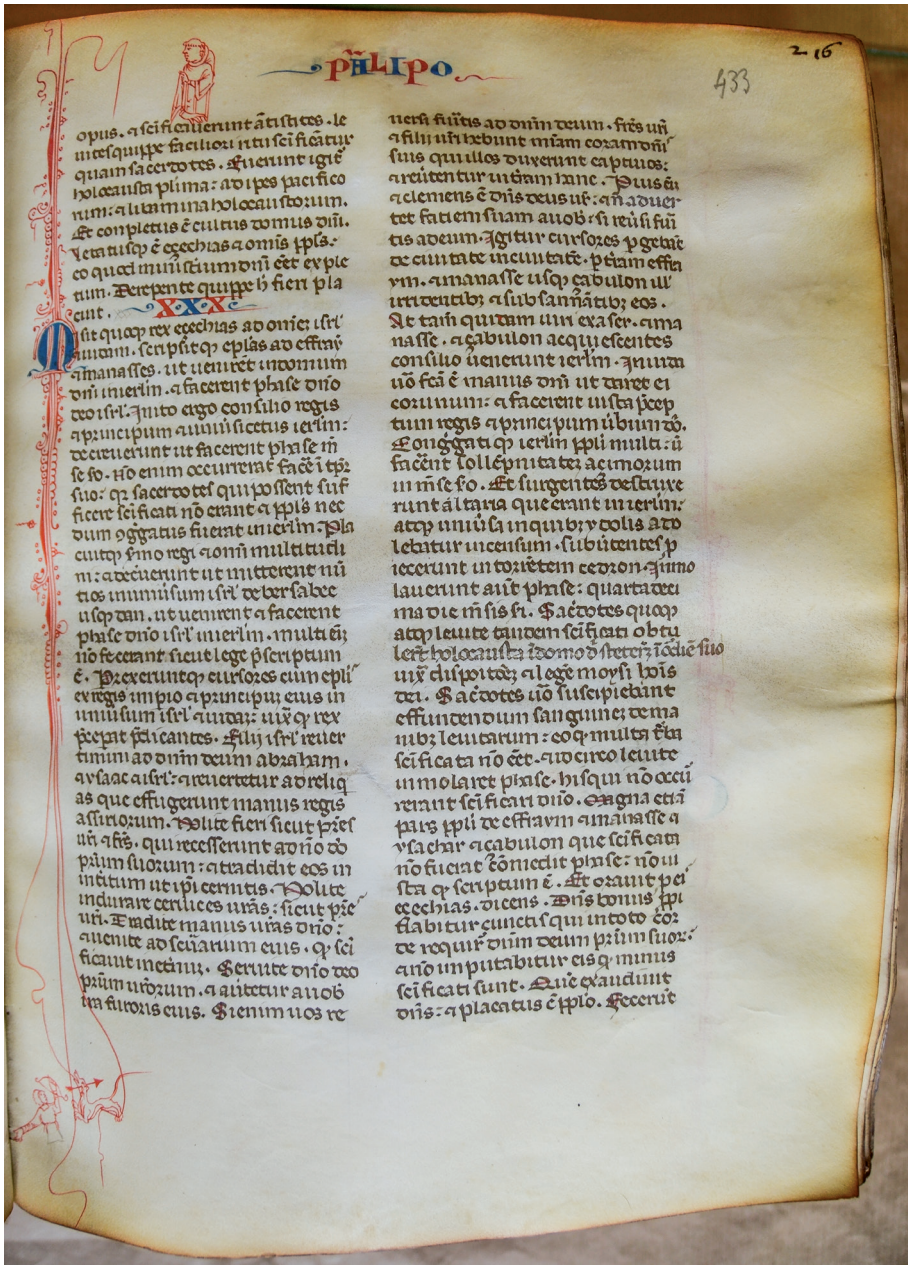 PARALIPO
2 16
433
opus. ⁊ scificauerunt ãtistites. le
uitesquippe faciliori ritu scificãtur
quam sacerdotes. Fuerunt igit᷑
holocausta plima: adipes pacifico
rum: ⁊ libamina holocaustorum.
Et conpletus ẽ cultus domus dñi.
letatusqꝫ ẽ eçechias ⁊ omĩs ppl̃s.
eo quod ministiũm dñi ẽẽt exple
tum. Derepente quippe h̃ fieri pla
cuit.
XXX
Misit quoqꝫ rex eçechias ad omneꝫ isrl̃
⁊iudam. scripsitqꝫ eplãs ad effraỹ
⁊manasses. ut uenirẽt indomum
dñi inierlm̃. ⁊ facerent phase dño
deo isrl̃. Inito ergo consilio regis
⁊ principum ⁊ uniũsi cetus ierlm̃:
decreuerunt ut facerent phase in m̃
se so. Nõ enim occurrerat facẽ ĩ tp̃r
suo: qꝛ sacerdotes qui possent suf
ficere scificati nõ erant ⁊ ppl̃s nec
dum ꝯg̃gatus fuerat inierlm̃. Pla
cuitqꝫ sm̃o regi ⁊ omĩ multitudi
ni: ⁊ decreũerunt ut mitterent nũ
tios inuniũsum isrl̃ de bersabee
usqꝫ dan. ut uenirent ⁊ facerent
phase dño isrl̃ inierlm̃. multi eñi
nõ fecerant sicut lege p̃scriptum
ẽ. Prexeruntqꝫ cursores cum epl̃i
ex regis impio ⁊ principuꝫ eius in
uniũsum isrl̃ ⁊ iudaꝫ: iux̃ qꝫ rex
p̃cep̃at p̃dicantes. Filij isrl̃ reuer
timini ad dñm deum abraham.
⁊ ysaac ⁊ isrl̃: ⁊ reuertetur ad reliq
as que effugerunt manus regis
assiriorum. Nolite fieri sicut pr̃es
uri ⁊ fr̃s. qui recesserunt ad ño dõ
pr̃um suorum: ⁊ tradidit eos in
intitum ut ip̃i cernitis. Nolite
indurare ceruices ur̃as: sicut pr̃e
uri. Tradite manus ur̃as dño:
⁊ uenite ad sc̃uarium eius. qꝫ sci
ficauit inet̃nũ. Seruite dño deo
pr̃um ur̃orum. ⁊ aũtetur auob̃
ira furoris eius. Si enim uos re
uersi fũitis ad dñm deum. fr̃es uri
⁊ filij uri hebunt miãm coram dñi
suis qui illos duxerunt captiuos:
⁊ reũtentur int̃ram hanc. Pius eñ
⁊ clemens ẽ dñs deus ur̃: ⁊ ñ aduer
tet faciem suam auob̃: si reũsi fũi
tis ad eum. Igitur cursores p̱gebãt
de ciuitate in ciuitatẽ. p̱ t̃ram effra
ym. ⁊ manasse usqꝫ çabulon ill
irridentibꝫ ⁊ subsannãtibꝫ eos.
At tam̃ quidam uiri ex aser. ⁊ ma
nasse. ⁊ çabulon acquiescentes
consilio uenerunt ierlm̃. In iuda
uõ fcã ẽ manus dñi ut daret ei
cor unum: ⁊ facerent iuxta p̃cep
tum regis ⁊ principum ũbium dõ.
Congg̃ati qꝫ ierlm̃ ppl̃i multi: ũ
facẽnt sollẽpnitateꝫ açimorum
in m̃se so. Et surgentes destruxe
runt altaria que erant inierlm̃.
atqꝫ uniũsa in quibꝫ ydolis ado
lebatur incensum. subũtentes p̃
iecerunt intorrẽtem cedron. Immo
lauerunt aut̃ phase: quarta deci
ma die m̃sis si. Sac̃dotes quoqꝫ
atqꝫ leuite tandem scificati obtu
ler̃t holocausta ĩ domo d̃ steterũt ĩ oĩdĩe suo
iux̃ dispositõeꝫ ⁊ legẽ moysi hoĩs
dei. Sac̃dotes uõ suscipiebant
effundendum sanguineꝫ de ma
nibꝫ leuitarum: eo qꝫ multa t̃ba
scificata nõ ẽẽt. ⁊ idcirco leuite
inmolarẽt phase. his qui nõ occũ
rerant scificari dño. Magna etiã
pars ppl̃i de effraym ⁊ manasse ⁊
ysachar ⁊ çabulon que scificata
nõ fuerat cõmedit phase: nõ iu
xta qꝫ scriptum ẽ. Et orauit p̱ ei
eçechias. dicens. Dñs bonus p̱pi
tiabitur cunctis qui intoto cor
de requir̃ dñm deum pr̃um suoꝛ:
⁊ nõ inputabitur eis qꝫ minus
scificati sunt. Quẽ exaudiuit
dñs: ⁊ placatus ẽ pplo. Fecerũt